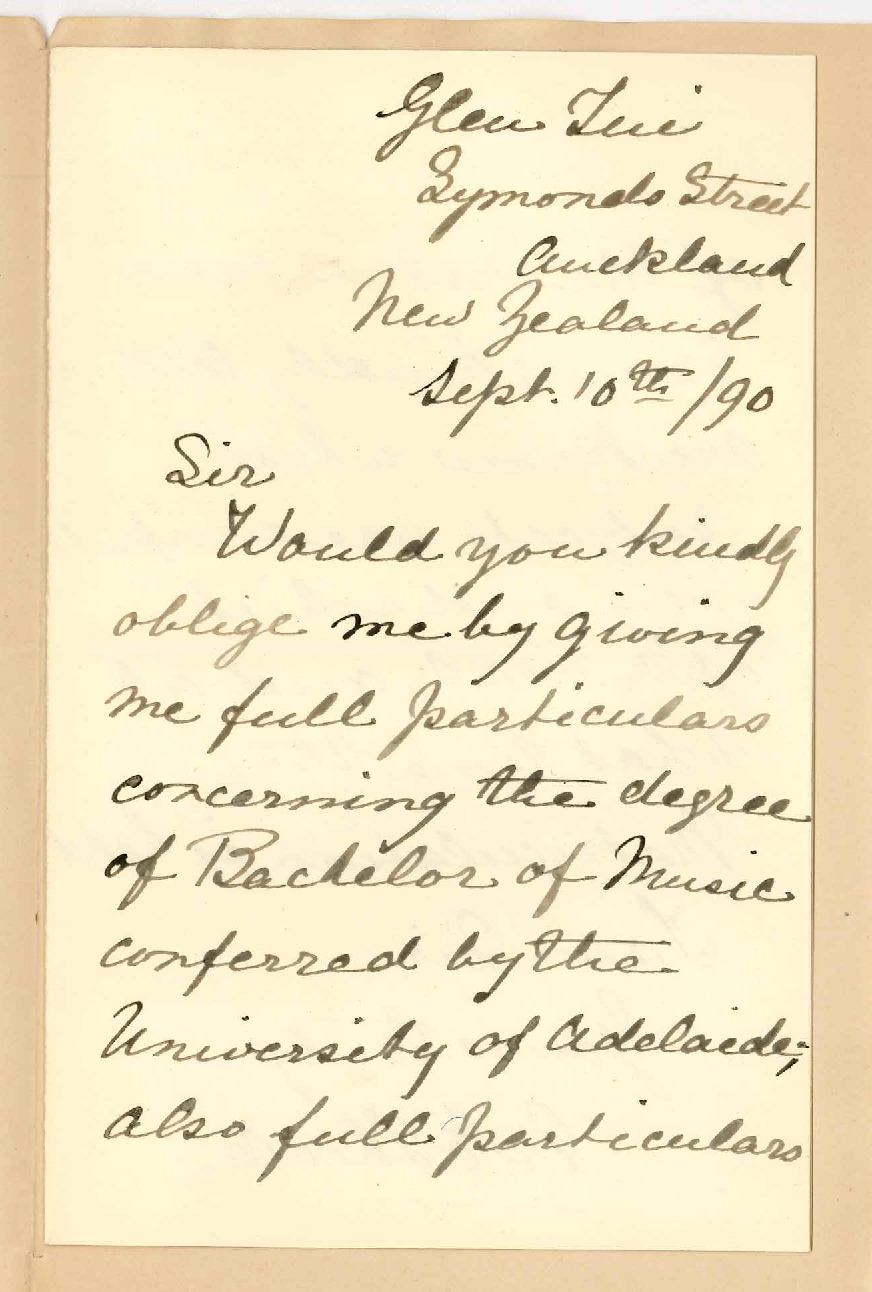 Glen Tui
Symonds Street
Auckland
New Zealand
Sept. 10th /90
Sir
Would you kindly
oblige me by giving
me full particulars
concerning the degree
of Bachelor of Music
conferred by the
University of Adelaide;
also full particulars